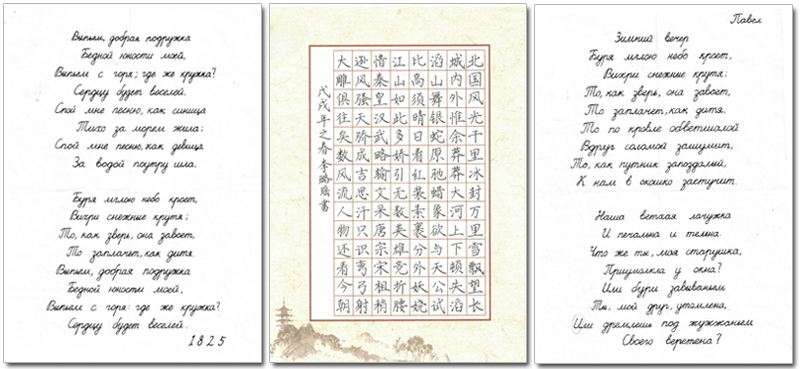 Выпьем, добрая подружка
Бедной юности моей,
Выпьем с горя; где же кружка?
Сердцу будет веселей.
Спой мне песню, как синица
Тихо за морем жила;
Спой мне песню, как девица
За водой поутру шла.
Буря мглою небо кроет,
Вихри снежные крутя;
То, как зверь, она завоет,
То заплачет, как дитя.
Выпьем, добрая подружка
Бедной юности моей,
Выпьем с горя: где же кружка?
Сердцу будет веселей.
1825
北国风光千里冰封万里雪飘望长
城内外惟余莽莽大河上下顿失滔
滔山舞银蛇原驰蜡象欲与天公试
比高须晴日看红装素裹分外妖娆
江山如此多娇引无数英雄竞折腰
惜秦皇汉武略输文采唐宗宋祖稍
逊风骚天骄成吉思汗只识弯弓射
大雕俱往矣数风流人物还看今朝
戊戌年之春 李璐瑶书
Павел
Зимний вечер
Буря мглою небо кроет,
Вихри снежные крутя;
То, как зверь, она завоет,
То заплачет, как дитя.
То по кровле обветшалой
Вдруг соломой зашумит,
То, как путник запоздалый,
К нам в окошко застучит.
Наша ветхая лачужка
И печальна и темна.
Что же ты, моя старушка,
Приумолкла у окна?
Или бури завываньем
Ты, мой друг, утомлена,
Или дремлешь под жужжаньем
Своего веретена?